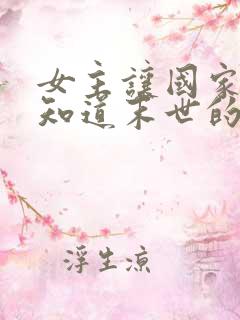 女主讓國家
知道末世的
浮生凉